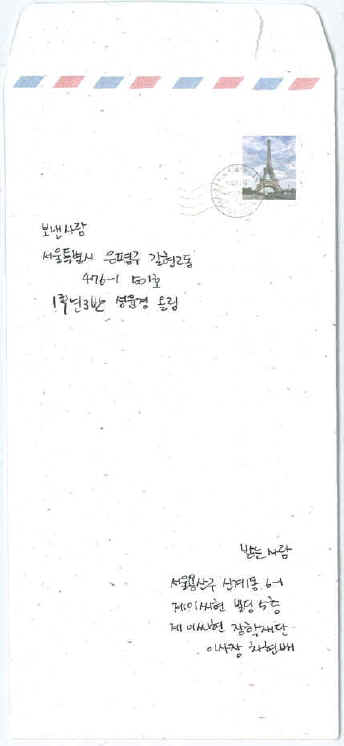 보낸사람
서울특별시 은평구 갈현2동
476-1 501호
1학년3반 성문경 올림
받는사람
서울용산구 신계동 6-1
제이씨현 빌딩 5층
제이씨현 장학재단
이사장 차현배